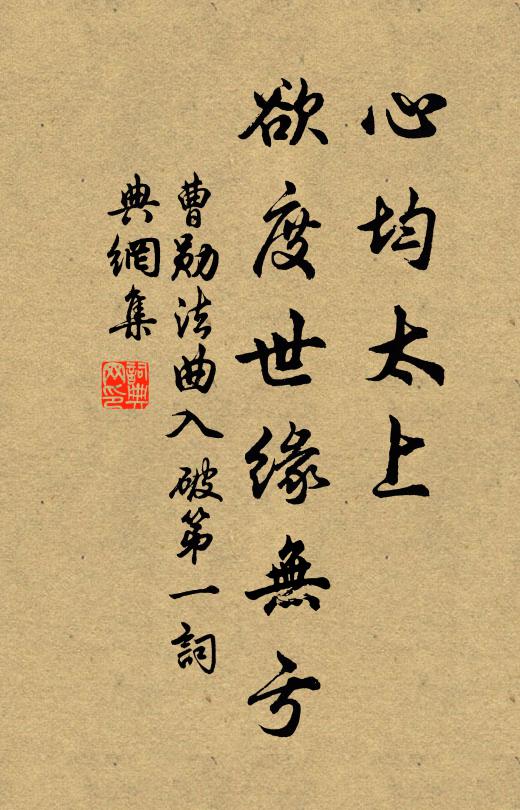 心均太上
欲度世緣無亏
曹勛法曲入破第一詞
典網集
詞典网印